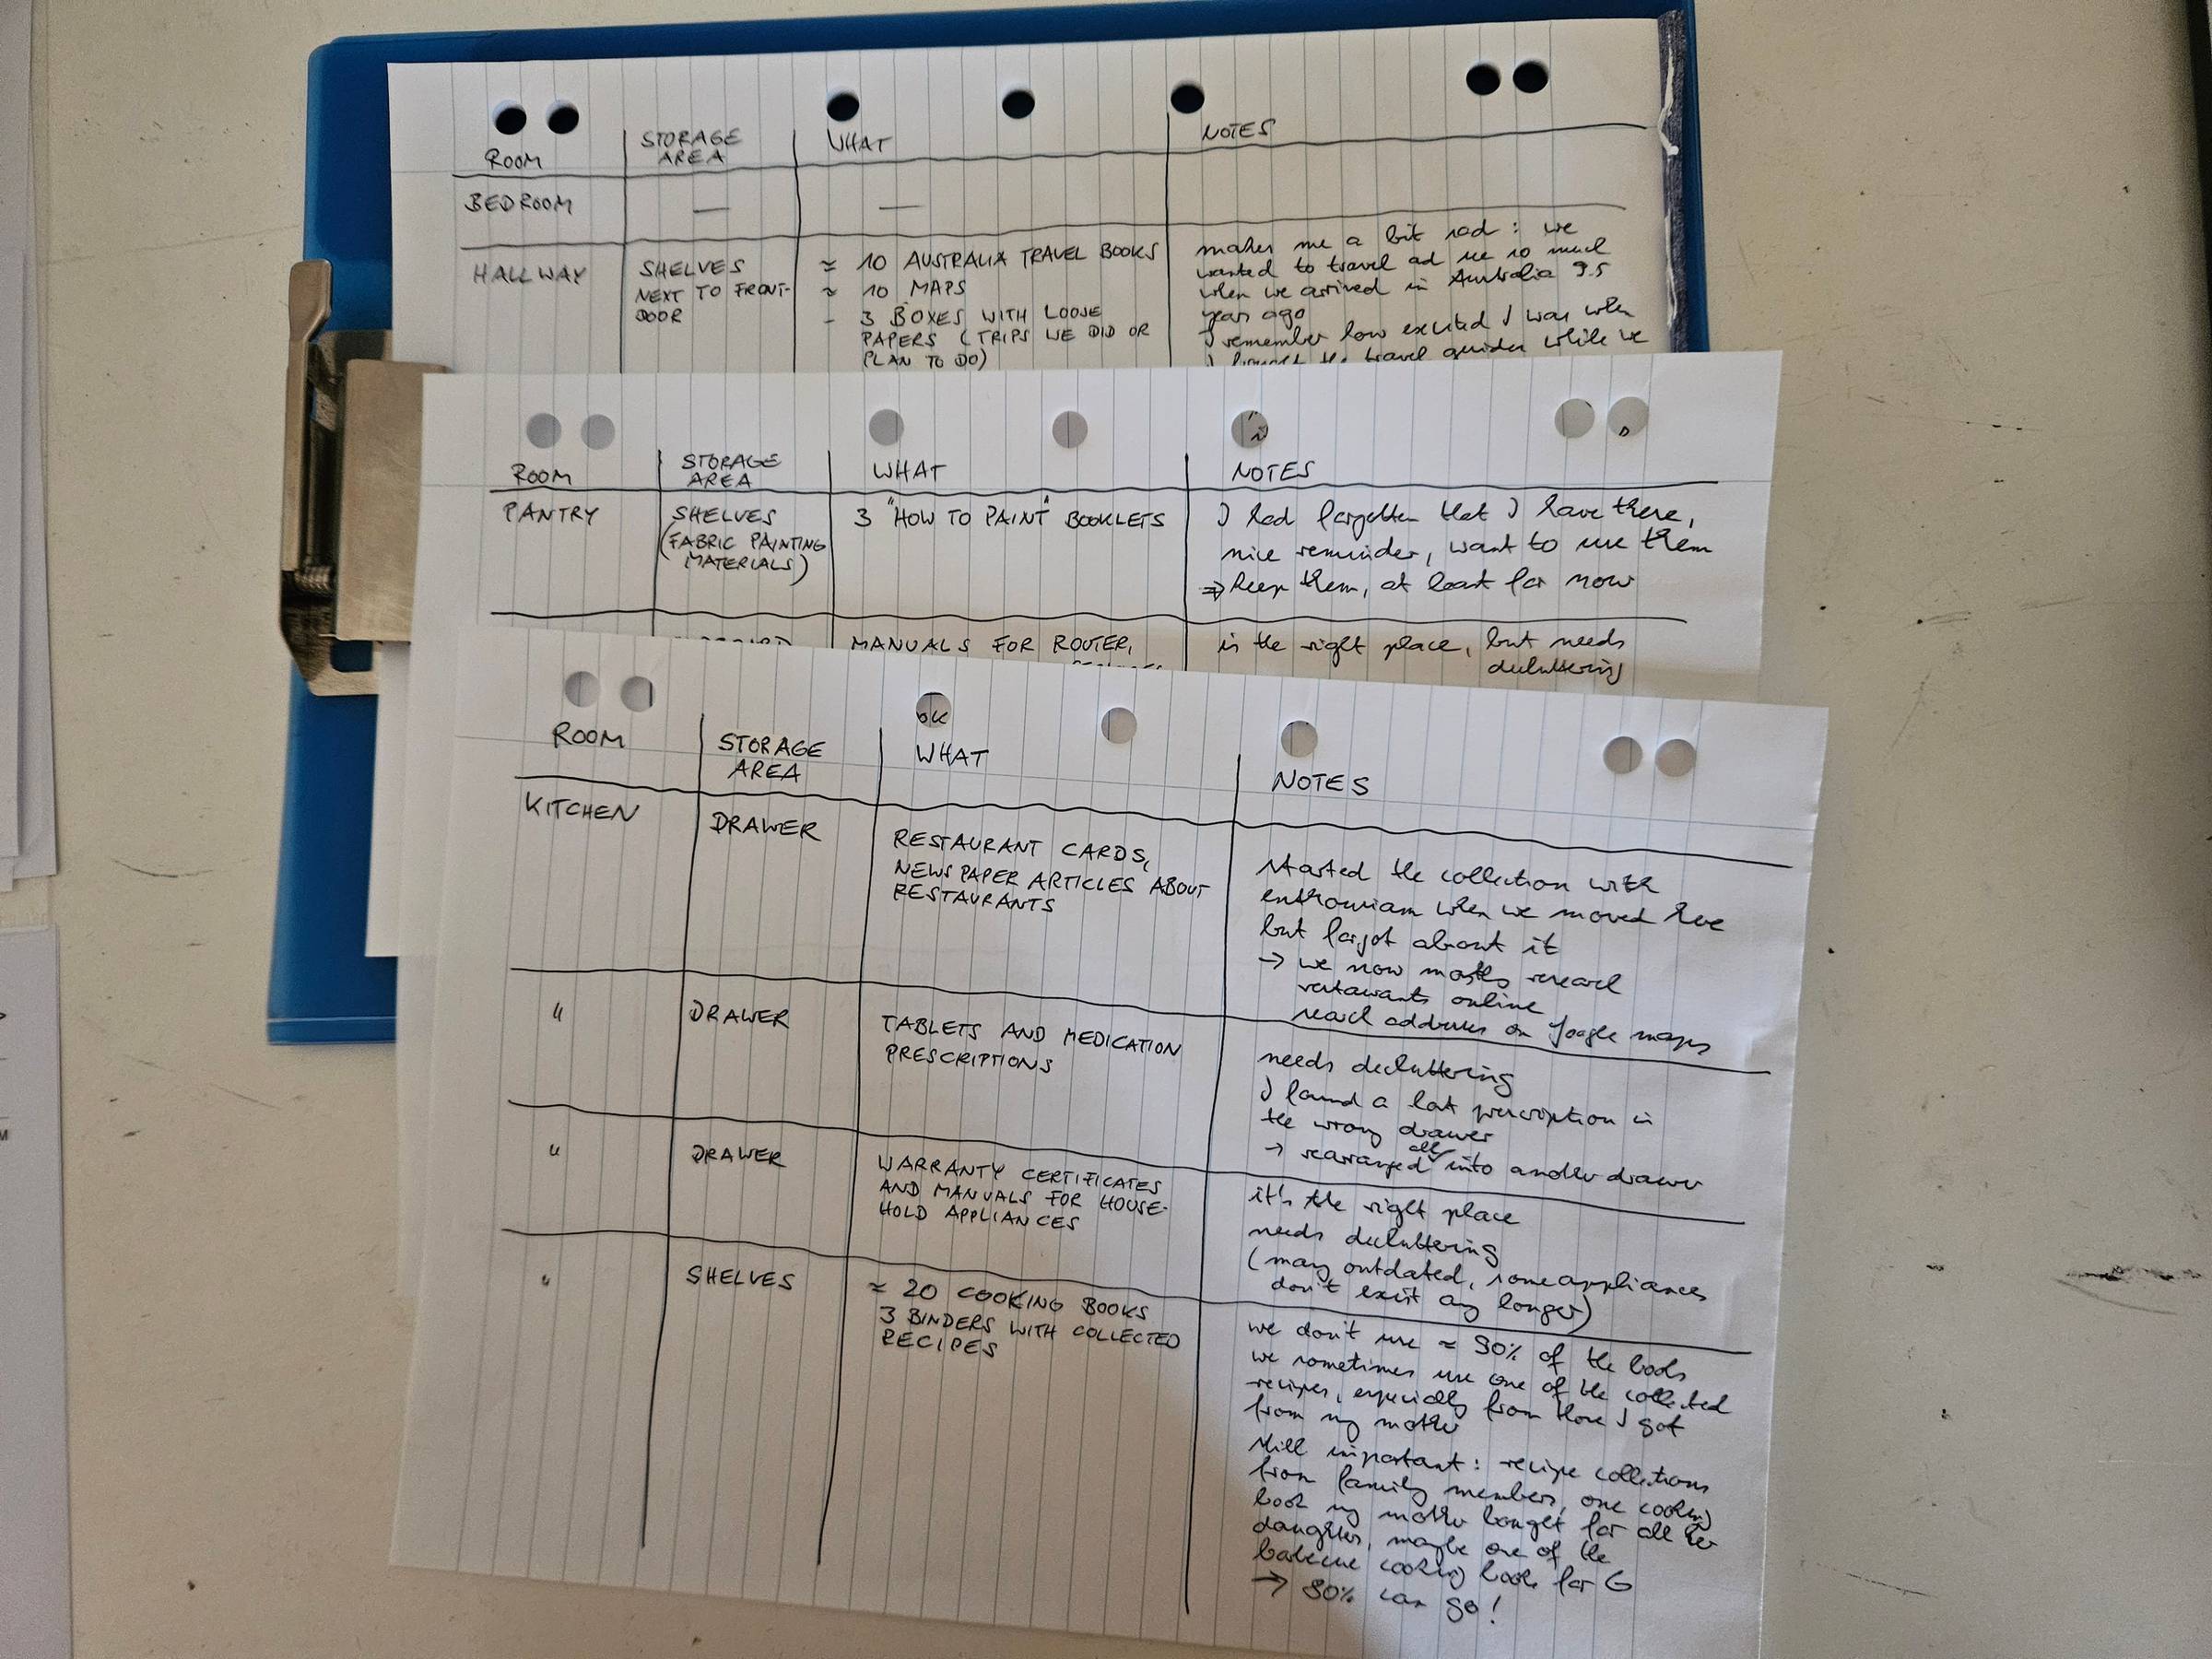 ROOM
STORAGE
AREA
WHAT
NOTES
BEDROOM — —
HALLWAY
SHELVES
NEXT TO FRONT-
DOOR
≈ 10 AUSTRALIA TRAVEL BOOKS
≈ 10 MAPS
- 3 BOXES WITH LOOSE
PAPERS (TRIPS WE DID OR
PLAN TO DO)
makes me a bit sad: we
wanted to travel ad see so much
when we arrived in Australia 9.5
years ago
I remember how excited I was when
I bought the travel guides while we
ROOM
STORAGE
AREA
WHAT
NOTES
PANTRY
SHELVES
(FABRIC PAINTING
MATERIALS)
3 "HOW TO PAINT" BOOKLETS
I had forgotten that I have there,
nice reminder, want to use them
⇒ keep them, at least for now
MANUALS FOR ROUTER,
is the right place, but needs
decluttering
ok
ROOM
STORAGE
AREA
WHAT
NOTES
KITCHEN
DRAWER
RESTAURANT CARDS,
NEWSPAPER ARTICLES ABOUT
RESTAURANTS
started the collection with
enthousiasm when we moved here
but forgot about it
→ we now mostly research
restaurants online
reach addresses on google maps
"
DRAWER
TABLETS AND MEDICATION
PRESCRIPTIONS
needs decluttering
I found a lost prescription in
the wrong drawer
→ rearranged all into another drawer
"
DRAWER
WARRANTY CERTIFICATES
AND MANUALS FOR HOUSE-
HOLD APPLIANCES
it's the right place
needs decluttering
(many outdated, some appliances
don't exist any longer)
"
SHELVES
≈ 20 COOKING BOOKS
3 BINDERS WITH COLLECTED
RECIPES
we don't use ≈ 90% of the books
we sometimes use one of the collected
recipes, especially from those I got
from my mother
still important: recipe collections
from family members, one cooking
book my mother bought for all her
daughters, maybe one of the
barbecue cooking books for G
→ 80% can go!